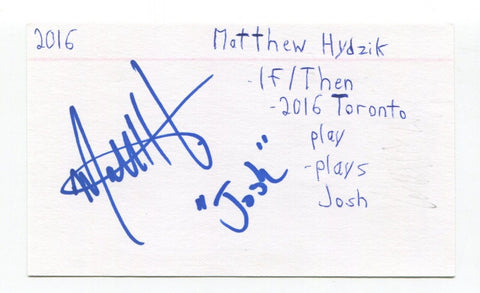 2016
Matthew Hydzik
-If/Then
-2016 Toronto
play
-plays
Josh
"Josh"